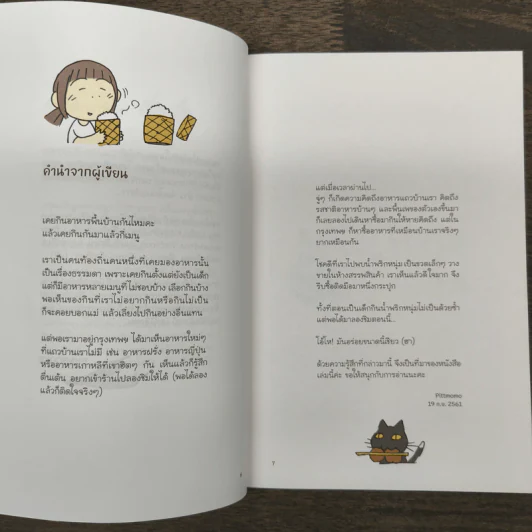 คำนำจากผู้เขียน
เคยกินอาหารพื้นบ้านกันไหมคะ
แล้วเคยกินกันมาแล้วกี่เมนู
เราเป็นคนท้องถิ่นคนหนึ่งที่เคยมองอาหารนั้น
เป็นเรื่องธรรมดา เพราะเคยกินตั้งแต่ยังเป็นเด็ก
แต่ก็มีอาหารหลายเมนูที่ไม่ชอบบ้าง เลือกกินบ้าง
พอเห็นของกินที่เราไม่อยากกินหรือกินไม่เป็น
ก็จะคอยบอกแม่ แล้วเลี่ยงไปกินอย่างอื่นแทน
แต่พอเรามาอยู่กรุงเทพฯ ได้มาเห็นอาหารใหม่ๆ
ที่แถวบ้านเราไม่มี เช่น อาหารฝรั่ง อาหารญี่ปุ่น
หรืออาหารเกาหลีที่เขาฮิตๆ กัน เห็นแล้วก็รู้สึก
ตื่นเต้น อยากเข้าร้านไปลองชิมให้ได้ (พอได้ลอง
แล้วก็ติดใจจริงๆ)
6
แต่เมื่อเวลาผ่านไป...
จู่ๆ ก็เกิดความคิดถึงอาหารแถวบ้านเรา คิดถึง
รสชาติอาหารบ้านๆ และพื้นเพของตัวเองขึ้นมา
ก็เลยลองไปเดินหาซื้อมากินให้หายคิดถึง แต่ใน
กรุงเทพฯ ก็หาซื้ออาหารที่เหมือนบ้านเราจริงๆ
ยากเหมือนกัน
โชคดีที่เราไปพบน้ำพริกหนุ่มเป็นขวดเล็กๆ วาง
ขายในห้างสรรพสินค้า เราเห็นแล้วดีใจมาก จึง
รีบซื้อติดมือมาหนึ่งกระปุก
ทั้งที่ตอนเป็นเด็กกินน้ำพริกหนุ่มไม่เป็นด้วยซ้ำ
แต่พอได้มาลองชิมตอนนี้...
โอ้โห! มันอร่อยขนาดนี้เชียว (ฮา)
ด้วยความรู้สึกที่กล่าวมานี้ จึงเป็นที่มาของหนังสือ
เล่มนี้ค่ะ ขอให้สนุกกับการอ่านนะคะ
19 ก.พ. 2561
7